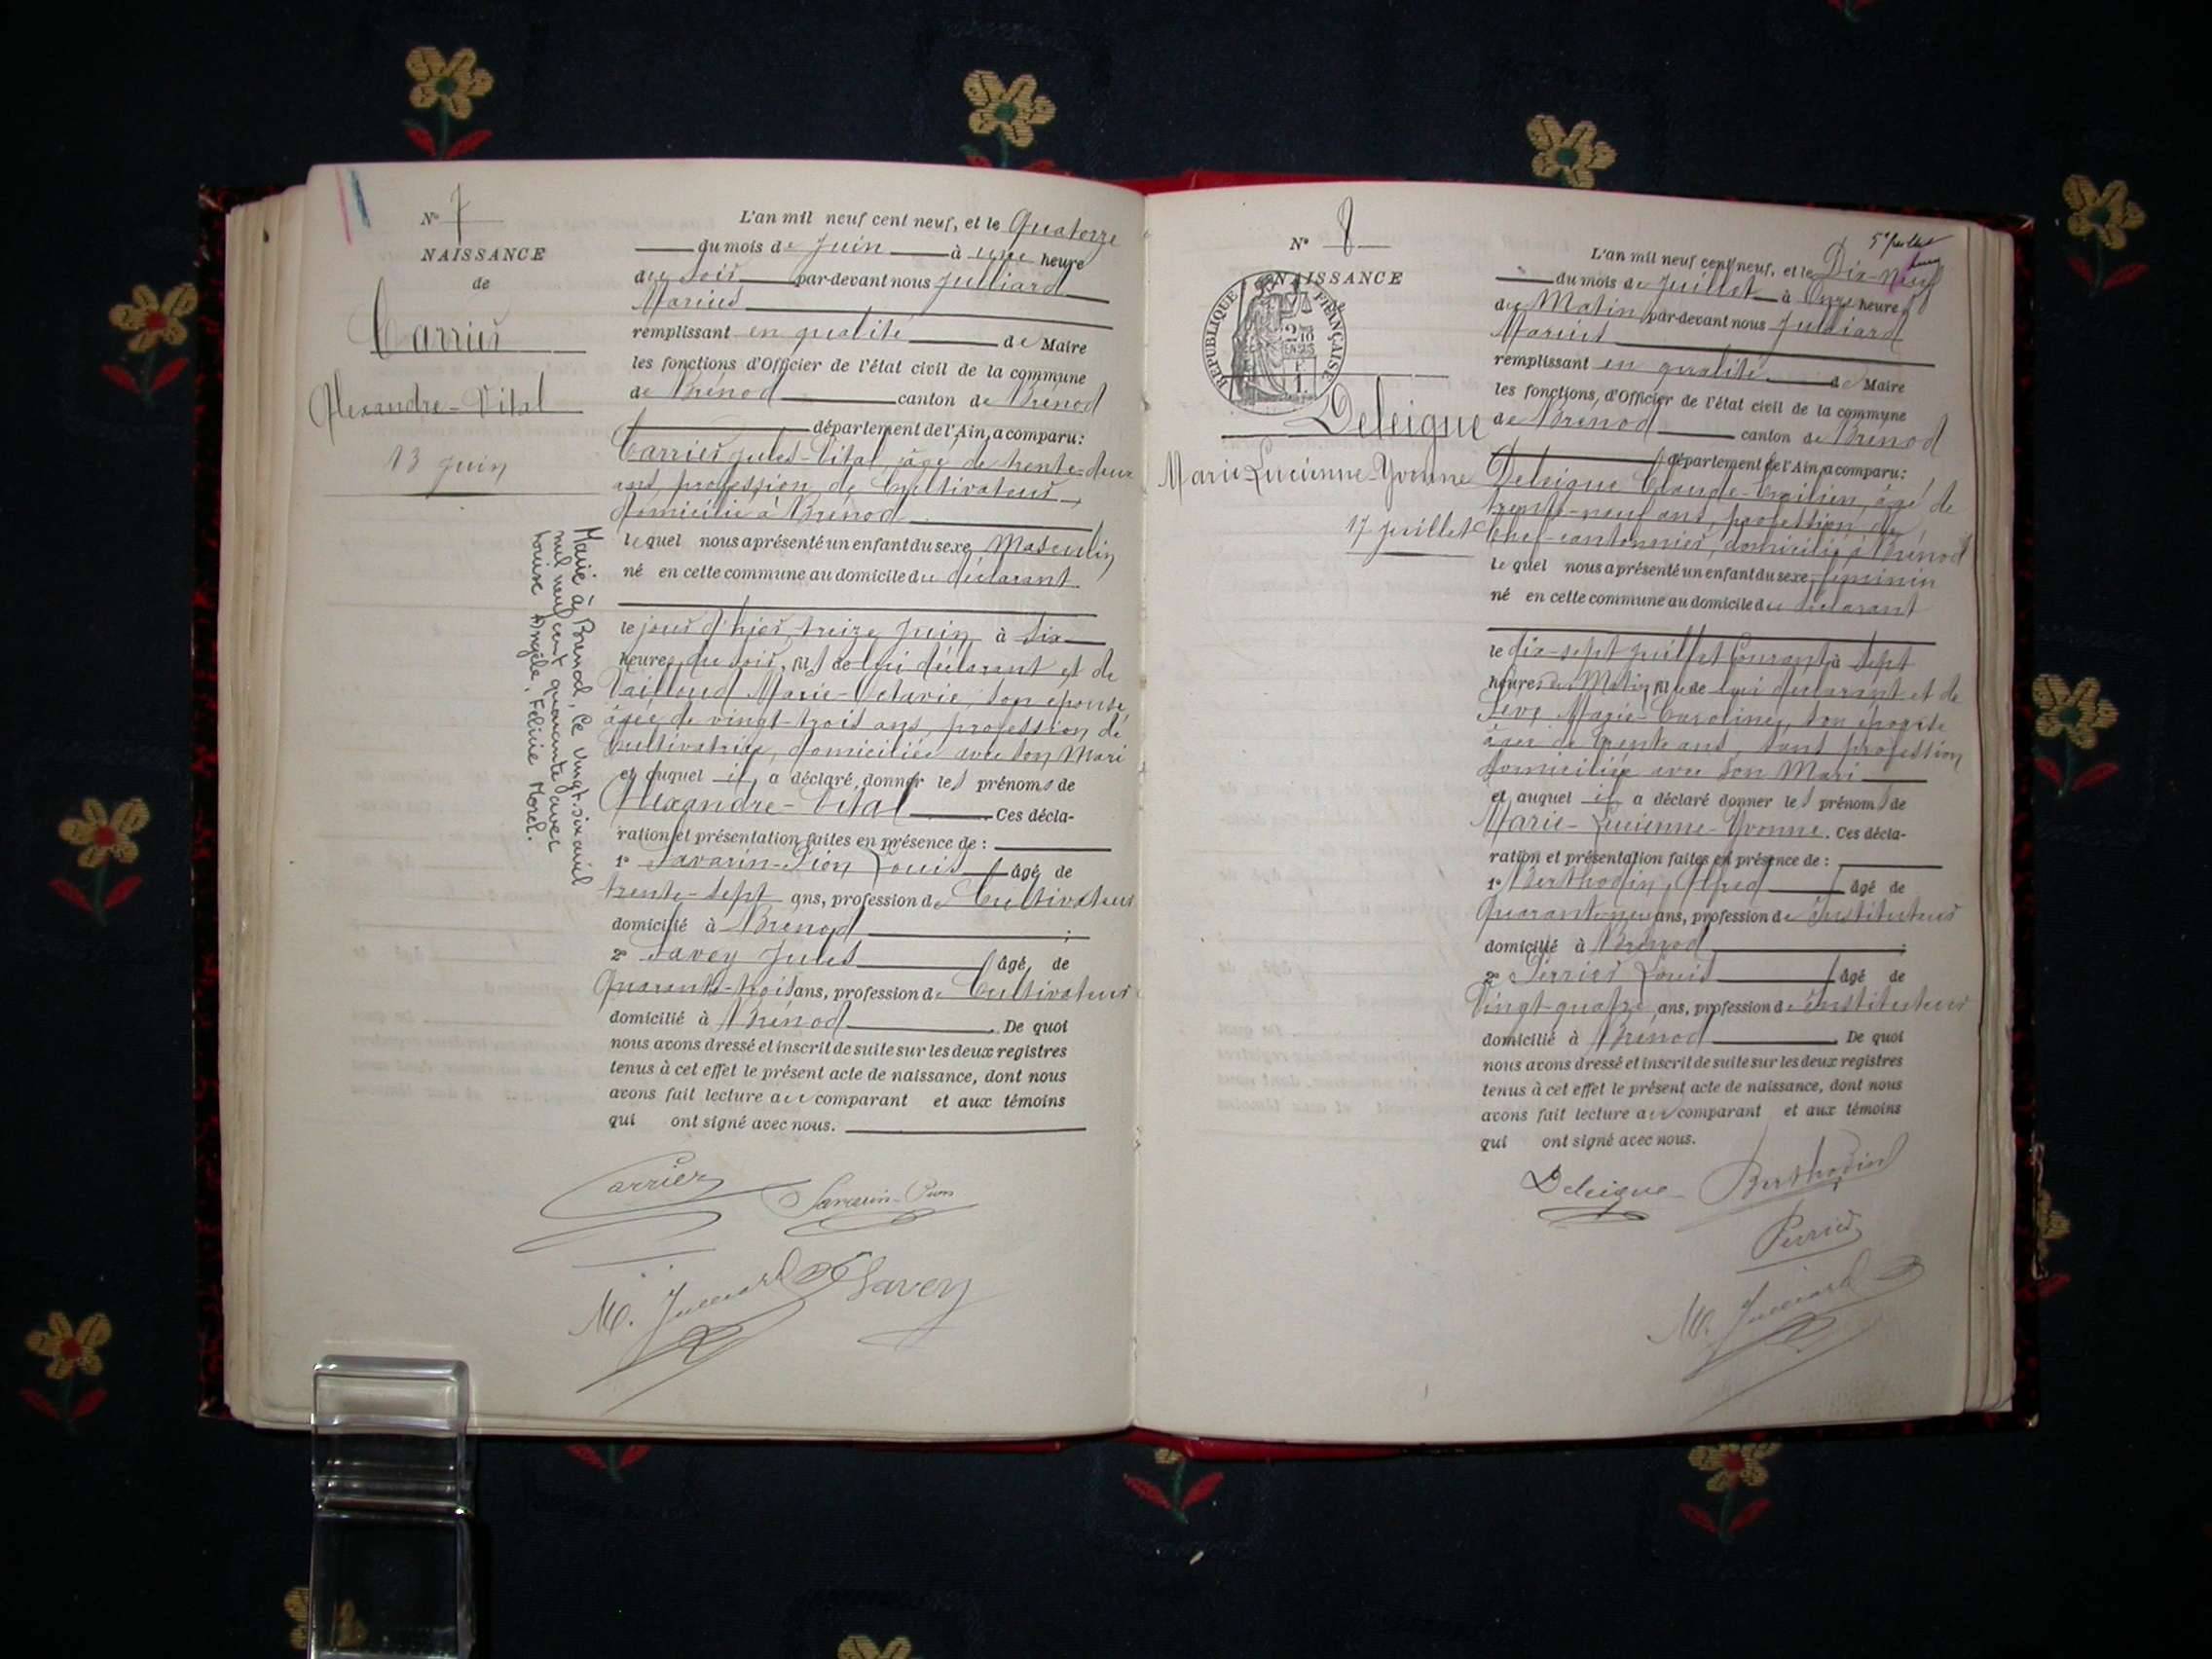 N° 7
NAISSANCE
de
Carrier
Alexandre-Vital
13 Juin
Marié à Brénod, le vingt-six avril
mil neuf cent quarante avec
Louise Angèle, Félicie Morel.
L'an mil neuf cent neuf, et le Quatorze
du mois de Juin à une heure
du soir par-devant nous Julliard
Marius
remplissant en qualité de Maire
les fonctions d'Officier de l'état civil de la commune
de Brénod canton de Brénod
département de l'Ain, a comparu:
Carrier Jules-Vital, âgé de trente-deux
ans, profession de Cultivateur,
domicilié à Brénod
lequel nous a présenté un enfant du sexe Masculin
né en cette commune au domicile du déclarant
le jour d'hier, treize Juin à Six
heures du soir, fils de lui déclarant et de
Vailloud Marie-Octavie, son épouse,
âgée de vingt-trois ans, profession de
Cultivatrice, domiciliée avec son Mari
et auquel il a déclaré donner les prénoms de
Alexandre-Vital Ces décla-
ration et présentation faites en présence de :
1° Savarin-Pion Louis âgé de
trente-sept ans, profession de Cultivateur
domicilié à Brénod ;
2° Savey Jules âgé de
Quarante-trois ans, profession de Cultivateur
domicilié à Brénod. De quoi
nous avons dressé et inscrit de suite sur les deux registres
tenus à cet effet le présent acte de naissance, dont nous
avons fait lecture au comparant et aux témoins
qui ont signé avec nous.
Carrier Savarin-Pion
M. Julliard Savey
N° 8
NAISSANCE
RÉPUBLIQUE FRANÇAISE
Deleigue
Marie-Lucienne-Yvonne
17 Juillet
L'an mil neuf cent neuf, et le Dix-Neuf
du mois de Juillet à Onze heures
du Matin par-devant nous Julliard
Marius
remplissant en qualité de Maire
les fonctions, d'Officier de l'état civil de la commune
de Brénod canton de Brénod
département de l'Ain, a comparu:
Deleigue Claude-, âgé de
trente-neuf ans, profession de
Chef-cantonnier, domicilié à Brénod
lequel nous a présenté un enfant du sexe féminin
né en cette commune au domicile du déclarant
le dix-sept Juillet Courant, à Sept
heures du Matin, fille de lui déclarant et de
Sève Marie-Caroline, son épouse
âgée de trente ans, sans profession
domiciliée avec son Mari
et auquel il a déclaré donner les prénoms de
Marie-Lucienne-Yvonne. Ces décla-
ration et présentation faites en présence de :
1° Berthodin, Alfred âgé de
Quarante neuf ans, profession de Instituteur
domicilié à Brénod ;
2° Perrier Louis âgé de
Vingt-quatre ans, profession de Instituteur
domicilié à Brénod. De quoi
nous avons dressé et inscrit de suite sur les deux registres
tenus à cet effet le présent acte de naissance, dont nous
avons fait lecture au comparant et aux témoins
qui ont signé avec nous.
Deleigue Berthodin
Perrier
M. Julliard